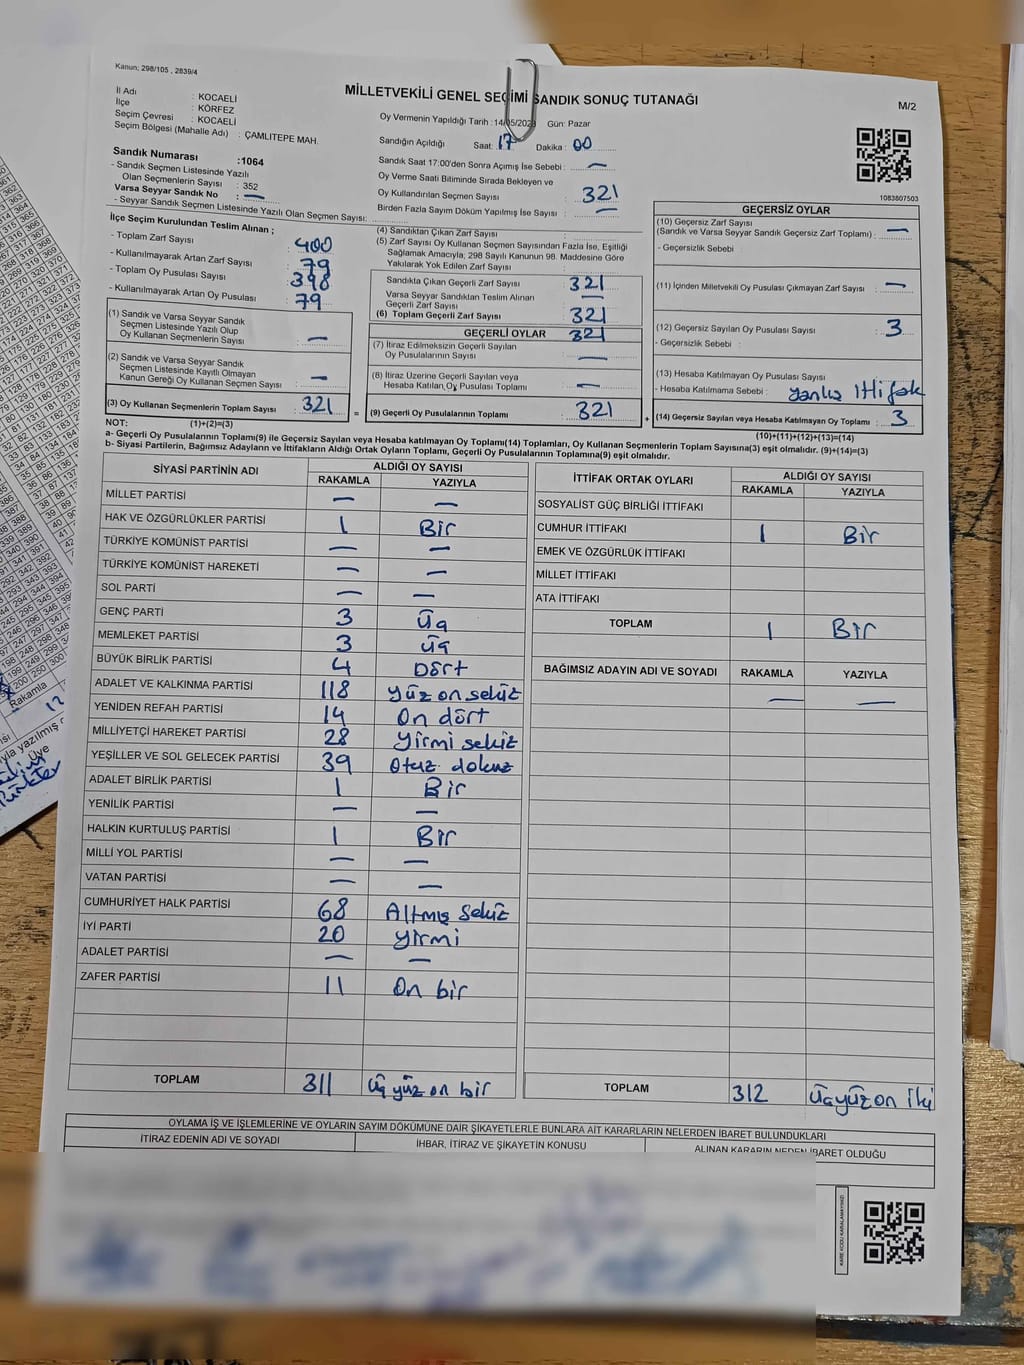 Kanun; 298/105 , 2839/4
MİLLETVEKİLİ GENEL SEÇİMİ SANDIK SONUÇ TUTANAĞI
M/2
İl Adı : KOCAELİ
İlçe : KÖRFEZ
Seçim Çevresi : KOCAELİ
Seçim Bölgesi (Mahalle Adı) : ÇAMLITEPE MAH.
Oy Vermenin Yapıldığı Tarih : 14/05/2023 Gün: Pazar
Sandığın Açıldığı Saat: 17 Dakika : 00
Sandık Saat 17:00'den Sonra Açımış İse Sebebi : —
Oy Verme Saati Bitiminde Sırada Bekleyen ve
Oy Kullandırılan Seçmen Sayısı : 321
Birden Fazla Sayım Döküm Yapılmış İse Sayısı : —
Sandık Numarası :1064
- Sandık Seçmen Listesinde Yazılı
Olan Seçmenlerin Sayısı : 352
Varsa Seyyar Sandık No : —
- Seyyar Sandık Seçmen Listesinde Yazılı Olan Seçmen Sayısı:
1083807503
İlçe Seçim Kurulundan Teslim Alınan ;
- Toplam Zarf Sayısı : 400
- Kullanılmayarak Artan Zarf Sayısı : 79
- Toplam Oy Pusulası Sayısı : 398
- Kullanılmayarak Artan Oy Pusulası : 79
(1) Sandık ve Varsa Seyyar Sandık
Seçmen Listesinde Yazılı Olup
Oy Kullanan Seçmenlerin Sayısı : —
(2) Sandık ve Varsa Seyyar Sandık
Seçmen Listesinde Kayıtlı Olmayan
Kanun Gereği Oy Kullanan Seçmen Sayısı : —
(3) Oy Kullanan Seçmenlerin Toplam Sayısı : 321
(1)+(2)=(3)
(4) Sandıktan Çıkan Zarf Sayısı :
(5) Zarf Sayısı Oy Kullanan Seçmen Sayısından Fazla İse, Eşitliği
Sağlamak Amacıyla; 298 Sayılı Kanunun 98. Maddesine Göre
Yakılarak Yok Edilen Zarf Sayısı :
Sandıkta Çıkan Geçerli Zarf Sayısı : 321
Varsa Seyyar Sandıktan Teslim Alınan
Geçerli Zarf Sayısı : —
(6) Toplam Geçerli Zarf Sayısı : 321
GEÇERLİ OYLAR 321
(7) İtiraz Edilmeksizin Geçerli Sayılan
Oy Pusulalarının Sayısı : —
(8) İtiraz Üzerine Geçerli Sayılan veya
Hesaba Katılan Oy Pusulası Toplamı : —
= (9) Geçerli Oy Pusulalarının Toplamı : 321 +
GEÇERSİZ OYLAR
(10) Geçersiz Zarf Sayısı
(Sandık ve Varsa Seyyar Sandık Geçersiz Zarf Toplamı) : —
- Geçersizlik Sebebi
(11) İçinden Milletvekili Oy Pusulası Çıkmayan Zarf Sayısı : —
(12) Geçersiz Sayılan Oy Pusulası Sayısı : 3
- Geçersizlik Sebebi :
(13) Hesaba Katılmayan Oy Pusulası Sayısı
- Hesaba Katılmama Sebebi : yanlış ittifak
(14) Geçersiz Sayılan veya Hesaba Katılmayan Oy Toplamı : 3
(10)+(11)+(12)+(13)=(14)
NOT:
a- Geçerli Oy Pusulalarının Toplamı(9) ile Geçersiz Sayılan veya Hesaba katılmayan Oy Toplamı(14) Toplamları, Oy Kullanan Seçmenlerin Toplam Sayısına(3) eşit olmalıdır. (9)+(14)=(3)
b- Siyasi Partilerin, Bağımsız Adayların ve İttifakların Aldığı Ortak Oyların Toplamı, Geçerli Oy Pusulalarının Toplamına(9) eşit olmalıdır.
SİYASİ PARTİNİN ADI ALDIĞI OY SAYISI
RAKAMLA YAZIYLA
MİLLET PARTİSİ — —
HAK VE ÖZGÜRLÜKLER PARTİSİ 1 Bir
TÜRKİYE KOMÜNİST PARTİSİ — —
TÜRKİYE KOMÜNİST HAREKETİ — —
SOL PARTİ — —
GENÇ PARTİ 3 üç
MEMLEKET PARTİSİ 3 üç
BÜYÜK BİRLİK PARTİSİ 4 Dört
ADALET VE KALKINMA PARTİSİ 118 yüz on sekiz
YENİDEN REFAH PARTİSİ 14 On dört
MİLLİYETÇİ HAREKET PARTİSİ 28 Yirmi sekiz
YEŞİLLER VE SOL GELECEK PARTİSİ 39 Otuz dokuz
ADALET BİRLİK PARTİSİ 1 Bir
YENİLİK PARTİSİ — —
HALKIN KURTULUŞ PARTİSİ 1 Bir
MİLLİ YOL PARTİSİ — —
VATAN PARTİSİ — —
CUMHURİYET HALK PARTİSİ 68 Altmış sekiz
İYİ PARTİ 20 yirmi
ADALET PARTİSİ — —
ZAFER PARTİSİ 11 On bir
TOPLAM 311 üç yüz on bir
İTTİFAK ORTAK OYLARI ALDIĞI OY SAYISI
RAKAMLA YAZIYLA
SOSYALİST GÜÇ BİRLİĞİ İTTİFAKI
CUMHUR İTTİFAKI 1 Bir
EMEK VE ÖZGÜRLÜK İTTİFAKI
MİLLET İTTİFAKI
ATA İTTİFAKI
TOPLAM 1 Bir
BAĞIMSIZ ADAYIN ADI VE SOYADI RAKAMLA YAZIYLA
— —
TOPLAM 312 üçyüz on iki
OYLAMA İŞ VE İŞLEMLERİNE VE OYLARIN SAYIM DÖKÜMÜNE DAİR ŞİKAYETLERLE BUNLARA AİT KARARLARIN NELERDEN İBARET BULUNDUKLARI
İTİRAZ EDENİN ADI VE SOYADI İHBAR, İTİRAZ VE ŞİKAYETİN KONUSU ALINAN KARARIN NEDEN İBARET OLDUĞU